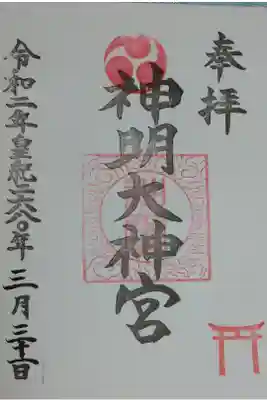 奉拝
神明大神宮
令和二年皇紀二六八〇年 三月二十一日